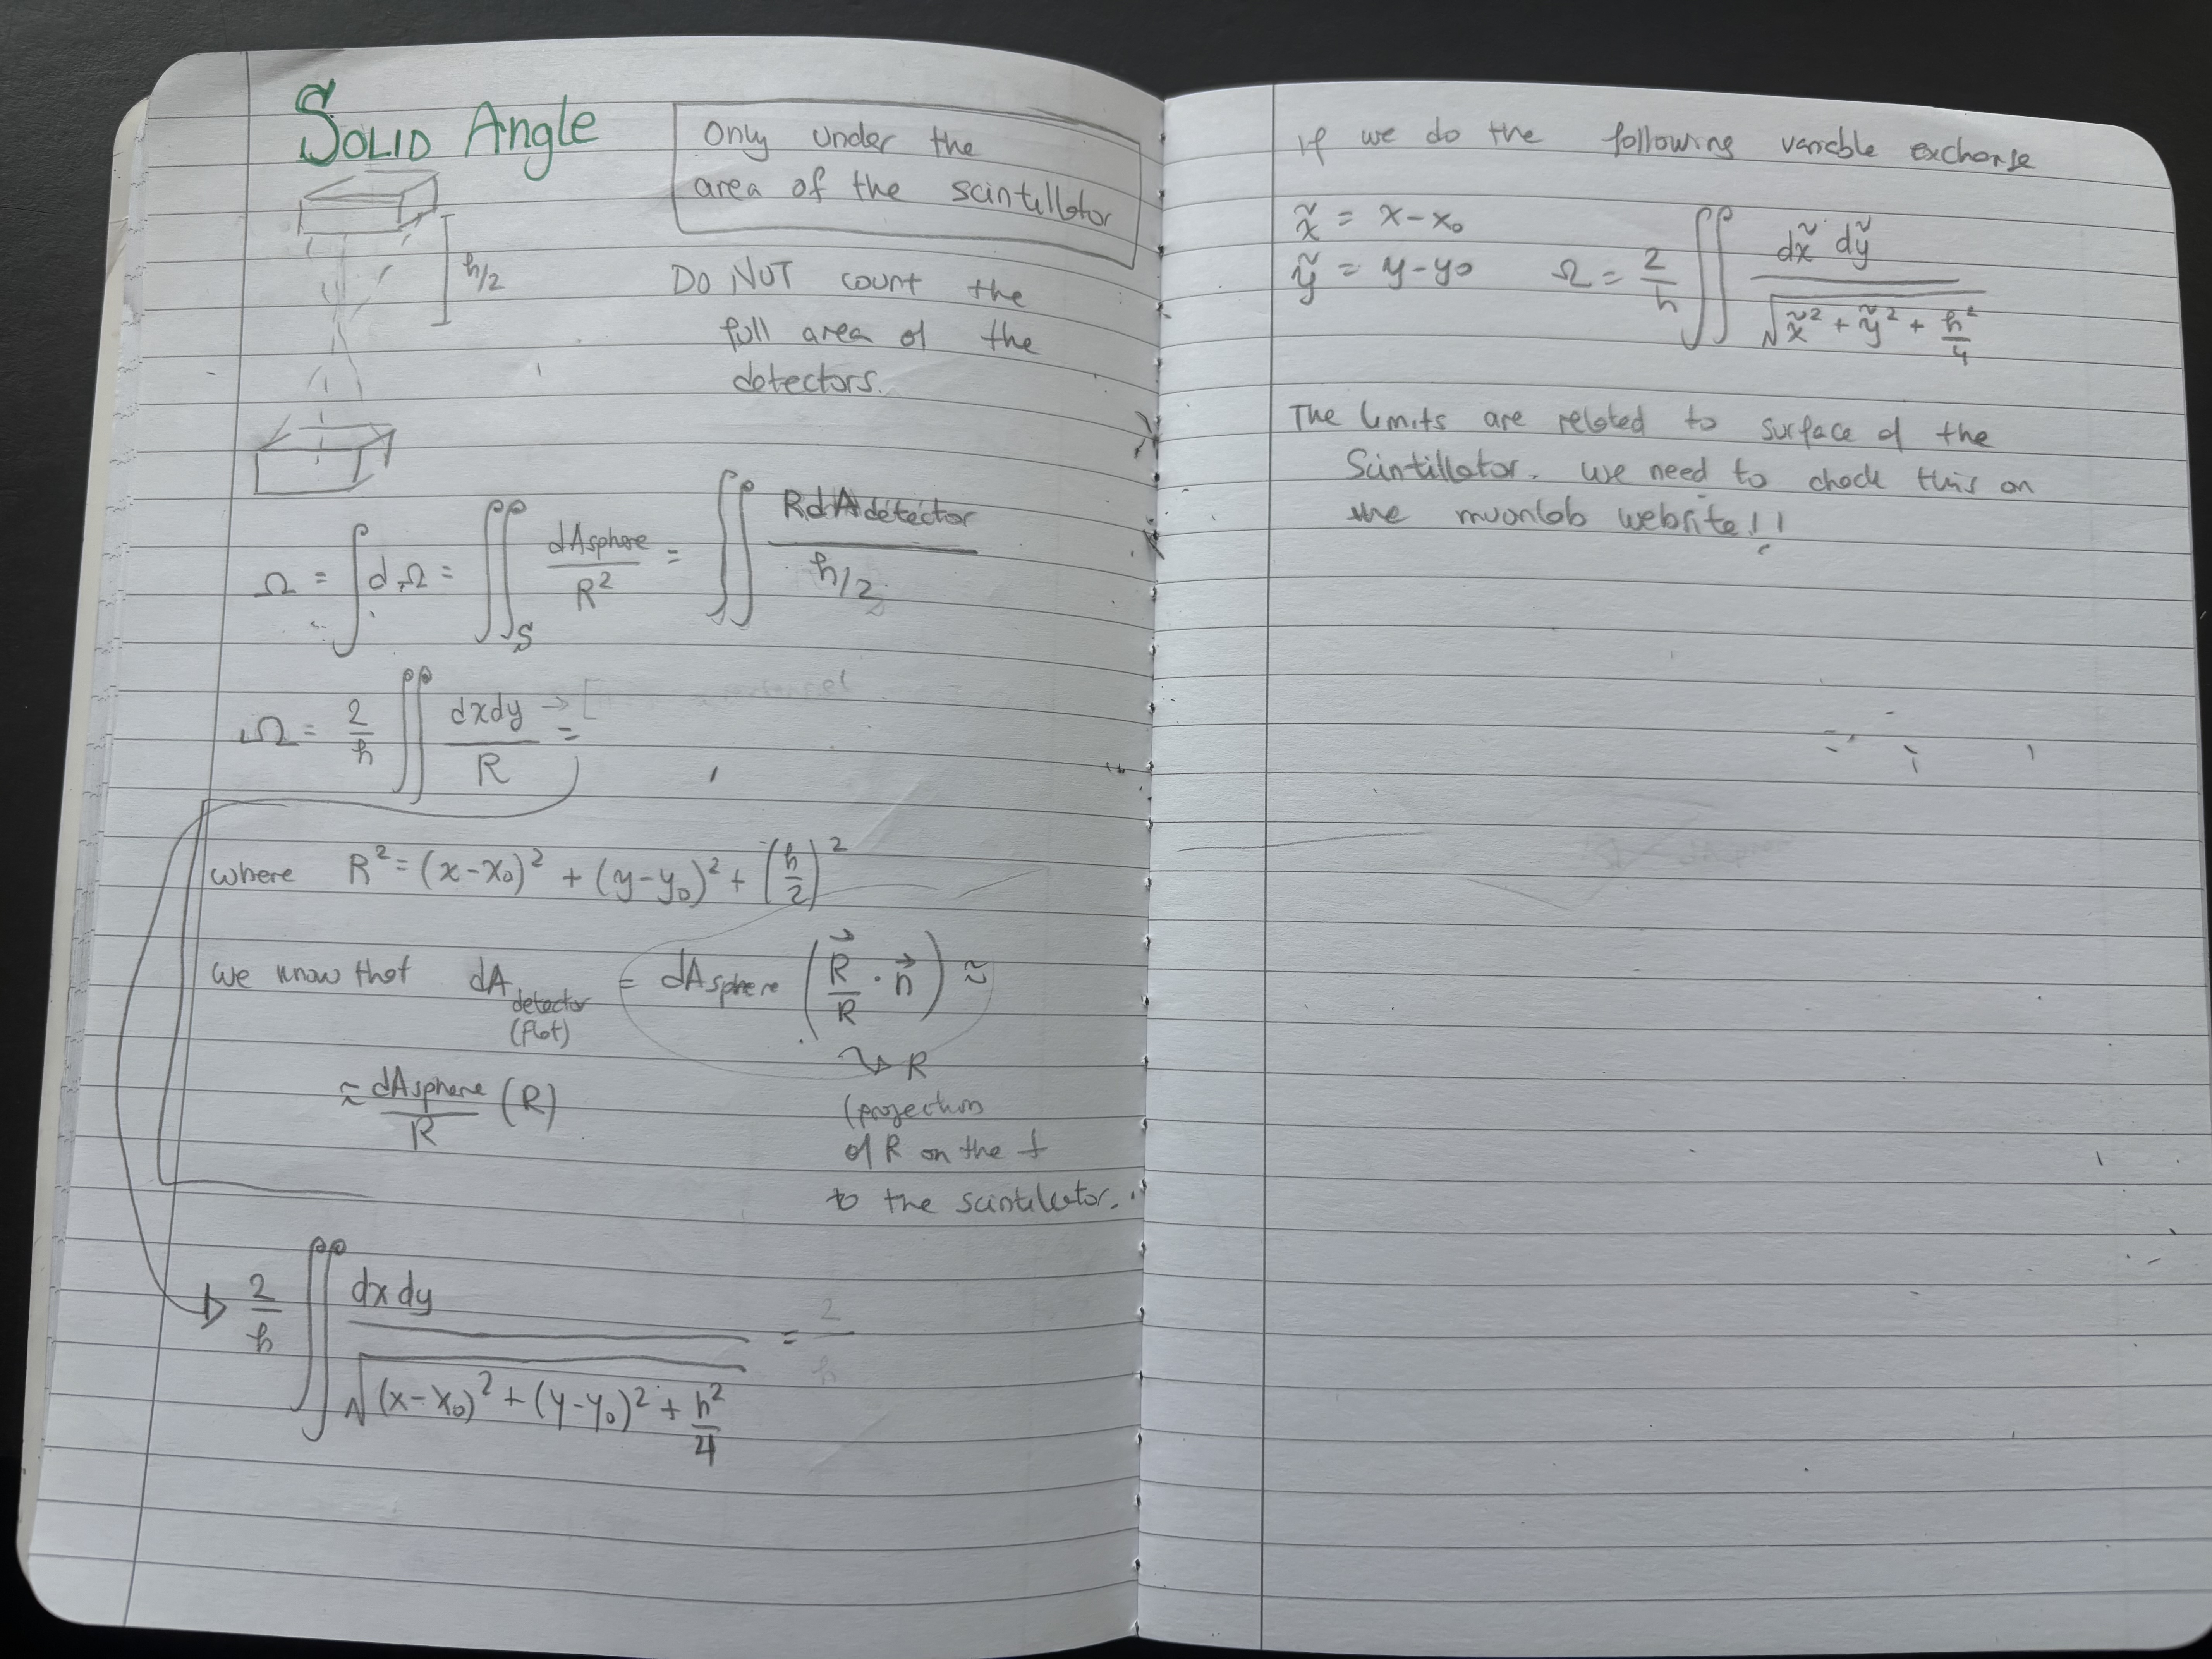 SOLID Angle
Only under the
area of the scintillator
h/2
DO NOT count the
full area of the
detectors.
Ω = ∫ dΩ = ∬_S dAsphere / R² = ∬ RdAdetector / h/2
Ω = 2/h ∬ dxdy / R =
where R² = (x-x₀)² + (y-y₀)² + (h/2)²
we know that dA detector (flat) = dAsphere (R⃗/R · n⃗) ≈
↪ R
≈ dAsphere/R (R)
(projection
of R on the ⊥
to the scintillator.
2/h ∬ dxdy / √((x-x₀)² + (y-y₀)² + h²/4) = 2/h
If we do the following variable exchange
x̃ = x-x₀
ỹ = y-y₀
Ω = 2/h ∬ dx̃ dỹ / √(x̃² + ỹ² + h²/4)
The limits are related to surface of the
Scintillator. we need to check this on
the muonlab website!!